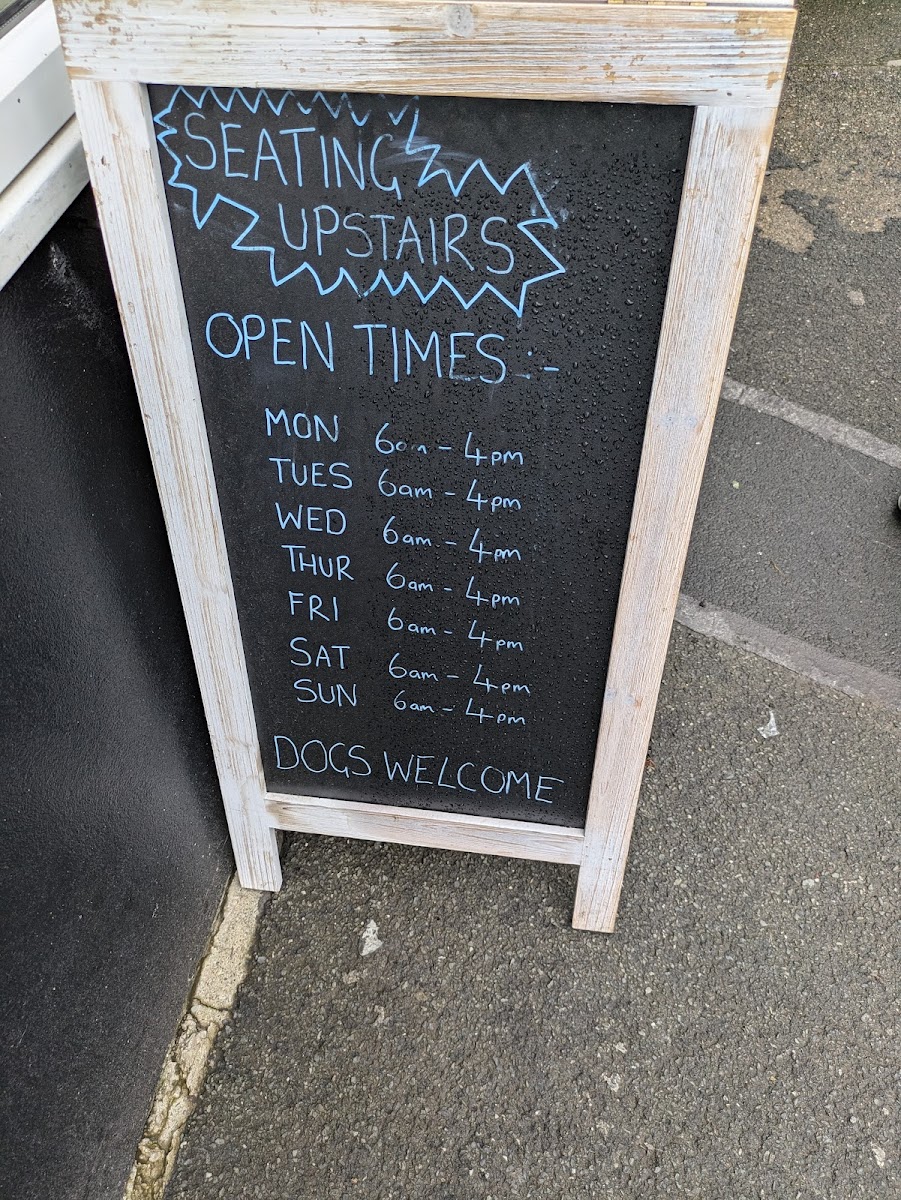 SEATING
UPSTAIRS
OPEN TIMES :-
MON 6am - 4pm
TUES 6am - 4pm
WED 6am - 4pm
THUR 6am - 4pm
FRI 6am - 4pm
SAT 6am - 4pm
SUN 6am - 4pm
DOGS WELCOME